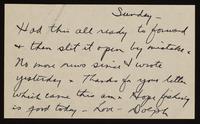 Sunday -
Had this all ready to forward
& then slit it open by mistake.
No more news since I wrote
yesterday. Thanks for your letter
which came this am. Hope fishing
is good today - Love - Dolph